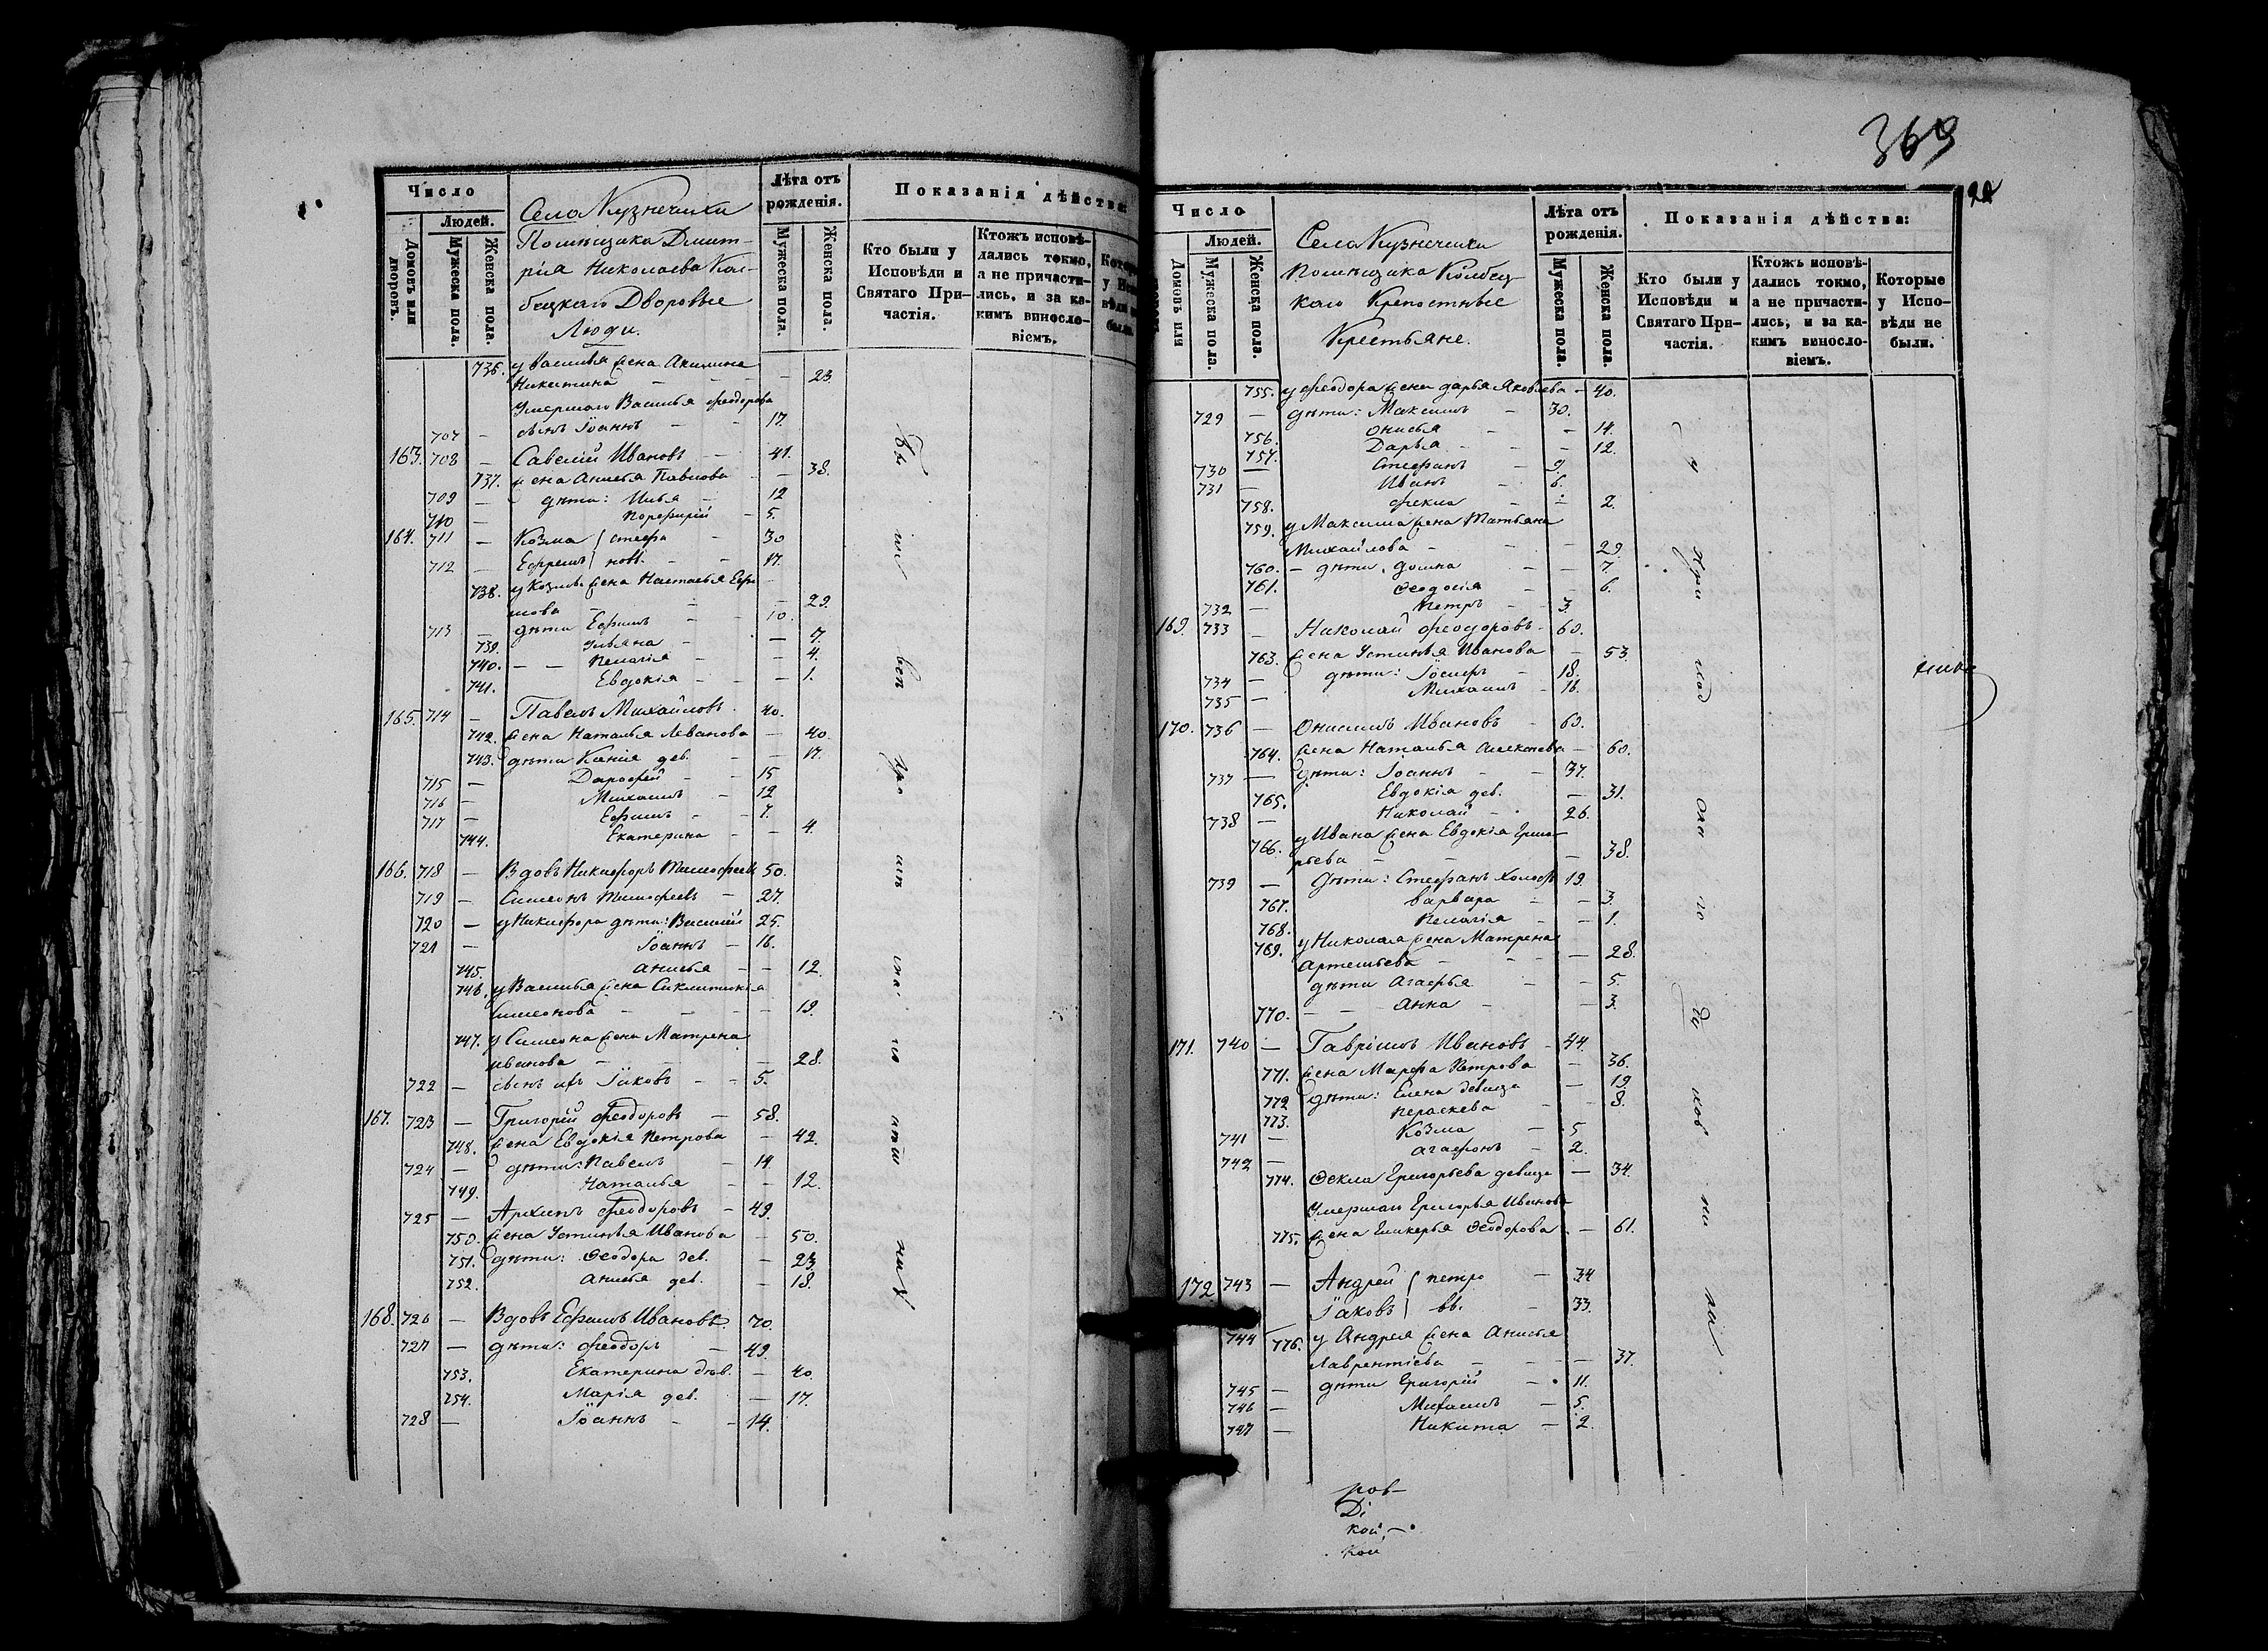 Число
Людей.
Домовъ или дворовъ.
Мужеска пола.
Женска пола.
Село Кузнечики
Помѣщика Дмит-
рія Николаева Кол-
бецкаго Дворовые
Люди.
Лѣта отъ рожденія.
Мужеска пола.
Женска пола.
Показанія дѣйства
Кто были у Исповѣди и Святаго При-частія.
Ктожъ исповѣ-дались токмо, а не причасти-лись, и за ка-кимъ винословіемъ.
736. у Василья жена Акилина
Никитина — — 23.
Умершаго Василья Феодорова
707 — сынъ Іоаннъ — 17.
163. 708 — Савелій Ивановъ — 41.
737. жена Анисья Павлова — 38.
709 — дѣти: Илья — 12
710 — Порфирій — 5.
164. 711 — Козма ( стефа — 30
712 — Ефремъ ) новы. — 17.
738. у Козмы жена Настасья Ефи
мова — 29.
713 — дѣти Ефимъ — 10.
739. Ульяна — 7.
740. — — Пелагія — 4.
741. Евдокія — 1.
165. 714 — Павелъ Михайловъ. 40.
742. жена Наталья Леванова — 40.
743. дѣти Ксенія дев. — 17.
715 — Дарофей — 15
716 — Михаилъ — 12
717 — Ефимъ — 7.
744. Екатерина — 4.
166. 718 — Вдовъ Никифоръ Тимофеевъ 50.
719 — Симеонъ Тимофеевъ — 27.
720 — у Никифора дѣти: Василій 25.
721 — Іоаннъ — 16.
745. Анисья — 12.
746. у Василья жена Сиклитикія
Симеонова — 19.
747. у Симеона жена Матрена
Иванова — 28.
722 — сынъ ихъ Іаковъ — 5.
167. 723 — Григорій Феодоровъ — 58.
748. жена Евдокія Петрова — 42.
724 — дѣти: Павелъ — 14.
749. Наталья — 12.
725 — Архипъ Феодоровъ — 49.
750. жена Устинья Иванова — 50.
751. дѣти: Феодора дев. — 23.
752. Анисья дев. — 18.
168. 726 — Вдовъ Ефимъ Ивановъ. 70.
727 — дѣти: Феодоръ — 49.
753. Екатерина дев. — 40.
754. Марія дев. — 17.
728 — Іоаннъ — 14.
369
Число
Людей.
Домовъ или
Мужеска пола.
Женска пола.
Села Кузнечики
помѣщика Колбец-
каго Крепостные
Крестьяне.
Лѣта отъ рожденія.
Мужеска пола.
Женска пола.
Показанія дѣйства:
Кто были у Исповѣди и Святаго При-частія.
Ктожъ исповѣ-дались токмо, а не причасти-лись, и за ка-кимъ винословіемъ.
Которые у Испо-вѣди не были.
755. у Феодора жена Дарья Яковлева — 40.
729 — дѣти: Максимъ — 30.
756. Онисья — 14.
757. Дарья — 12.
730 — Стефанъ — 9.
731 — Иванъ — 6.
758. Фекла — 2.
759. у Максима жена Татьяна
Михайлова — 29.
760. — дѣти: Домна — 7.
761. Феодосія — 6.
732 — Петръ — 3.
169. 733 — Николай Феодоровъ — 60.
763. жена Устинья Иванова — 53.
734 — дѣти: Іосифъ — 18.
735 — Михаилъ — 16.
170. 736 — Онисимъ Ивановъ — 60.
764. жена Наталья Алексеева — 60.
737 — дѣти: Іоаннъ — 37.
765. Евдокія дев. — 31.
738 — Николай — 26.
766. у Ивана жена Евдокія Григо-
рьева — 38.
739 — дѣти: Стефанъ 19.
767. Варвара — 3.
768. Пелагія — 1.
769. у Николая жена Матрена
Артемьева — 28.
дѣти Агафья — 5.
770. — — Анна — 3.
171. 740 — Гавріилъ Ивановъ — 44.
771. жена Марфа Петрова — 36.
772 дѣти: Елена девица — 19.
773. Пераскева — 8.
741 — Козма — 5
742 — Агафонъ — 2.
774. Фекла Григорьева девица — 34.
Умершаго Григорья Иванова
775. жена Гликерья Феодорова — 61.
172 743 — Андрей ( петро — 34
Іаковъ ) вы. — 33.
744 776. у Андрея жена Анисья
Лаврентіева — 37.
745 — дѣти Григорій — 11.
746 — Михаилъ — 5.
747 — Никита — 2.
ров-
Ді
кой,
кой